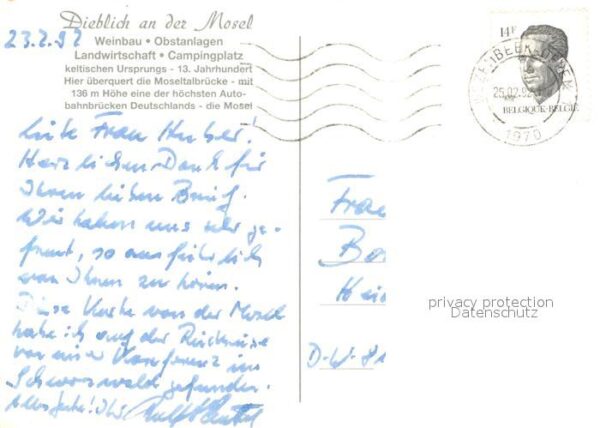 Dieblich an der Mosel
23.2.92
Weinbau • Obstanlagen
Landwirtschaft • Campingplatz
keltischen Ursprungs - 13. Jahrhundert
Hier überquert die Moseltalbrücke - mit
136 m Höhe eine der höchsten Auto-
bahnbrücken Deutschlands - die Mosel
Liebe Frau Huber!
Herzlichen Dank für
Ihren lieben Brief.
Wir haben uns sehr ge-
freut, so ausführlich
von Ihnen zu hören.
Diese Karte von der Mosel
habe ich auf der Rückreise
von einer Konferenz im
Schwarzwald gefunden.
Alles Gute! Ihr
14F
25.02.92
BELGIQUE-BELGIE
1970
Frau
D-W-81
privacy protection
Datenschutz